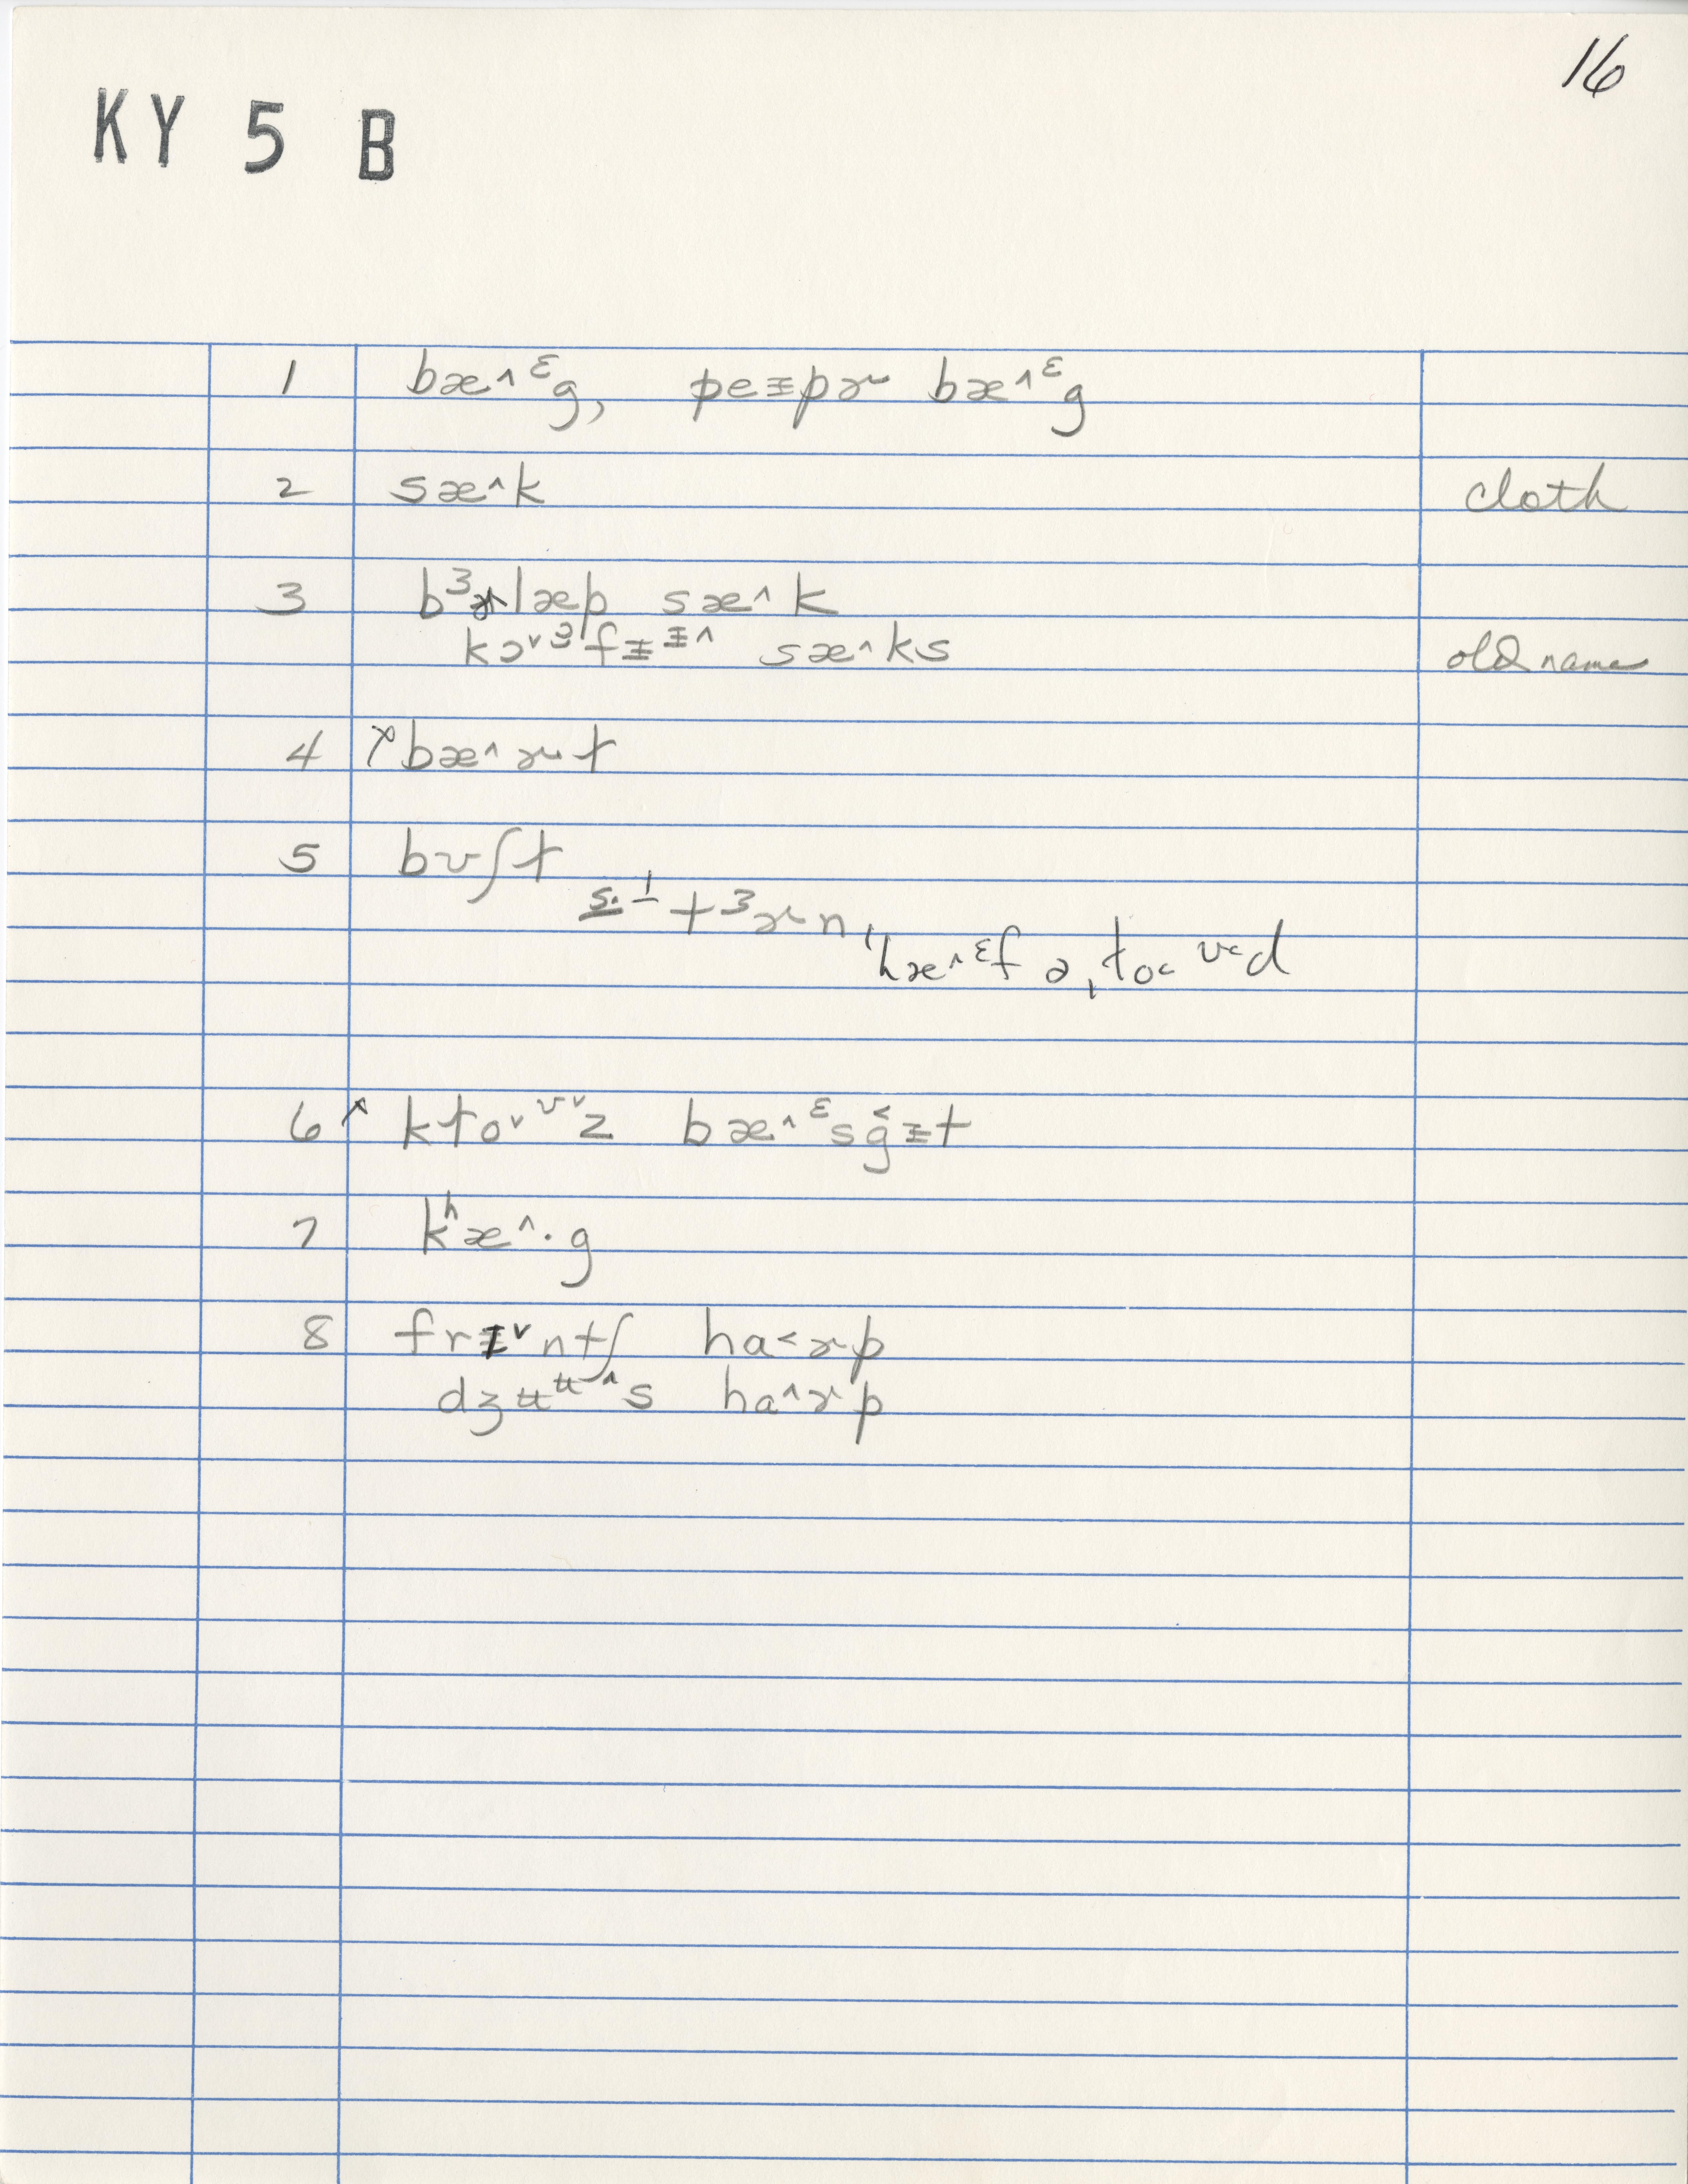 16
KY 5 B
1 bæ^ᵋg, peᵻpɚ bæ^ᵋg
2 sæ^k cloth
3 bᶟɚlæp sæ^k
kɔ˅ᶟfᵻᵻ^ sæ^ks old name
4 ↗bæ^ɚɫ
5 bʊʃɫ
s.⊥tᶟɚn, 'hæ^ᵋf ə ˌɫo< ʊ<d
6 ^ kɫo˅ʊ˅z bæ^ᵋsg̬ᵻt
7 kʰæ^·g
8 frɪ˅ntʃ ha<ɚp
dʒʉʉ^s ha^ɚp